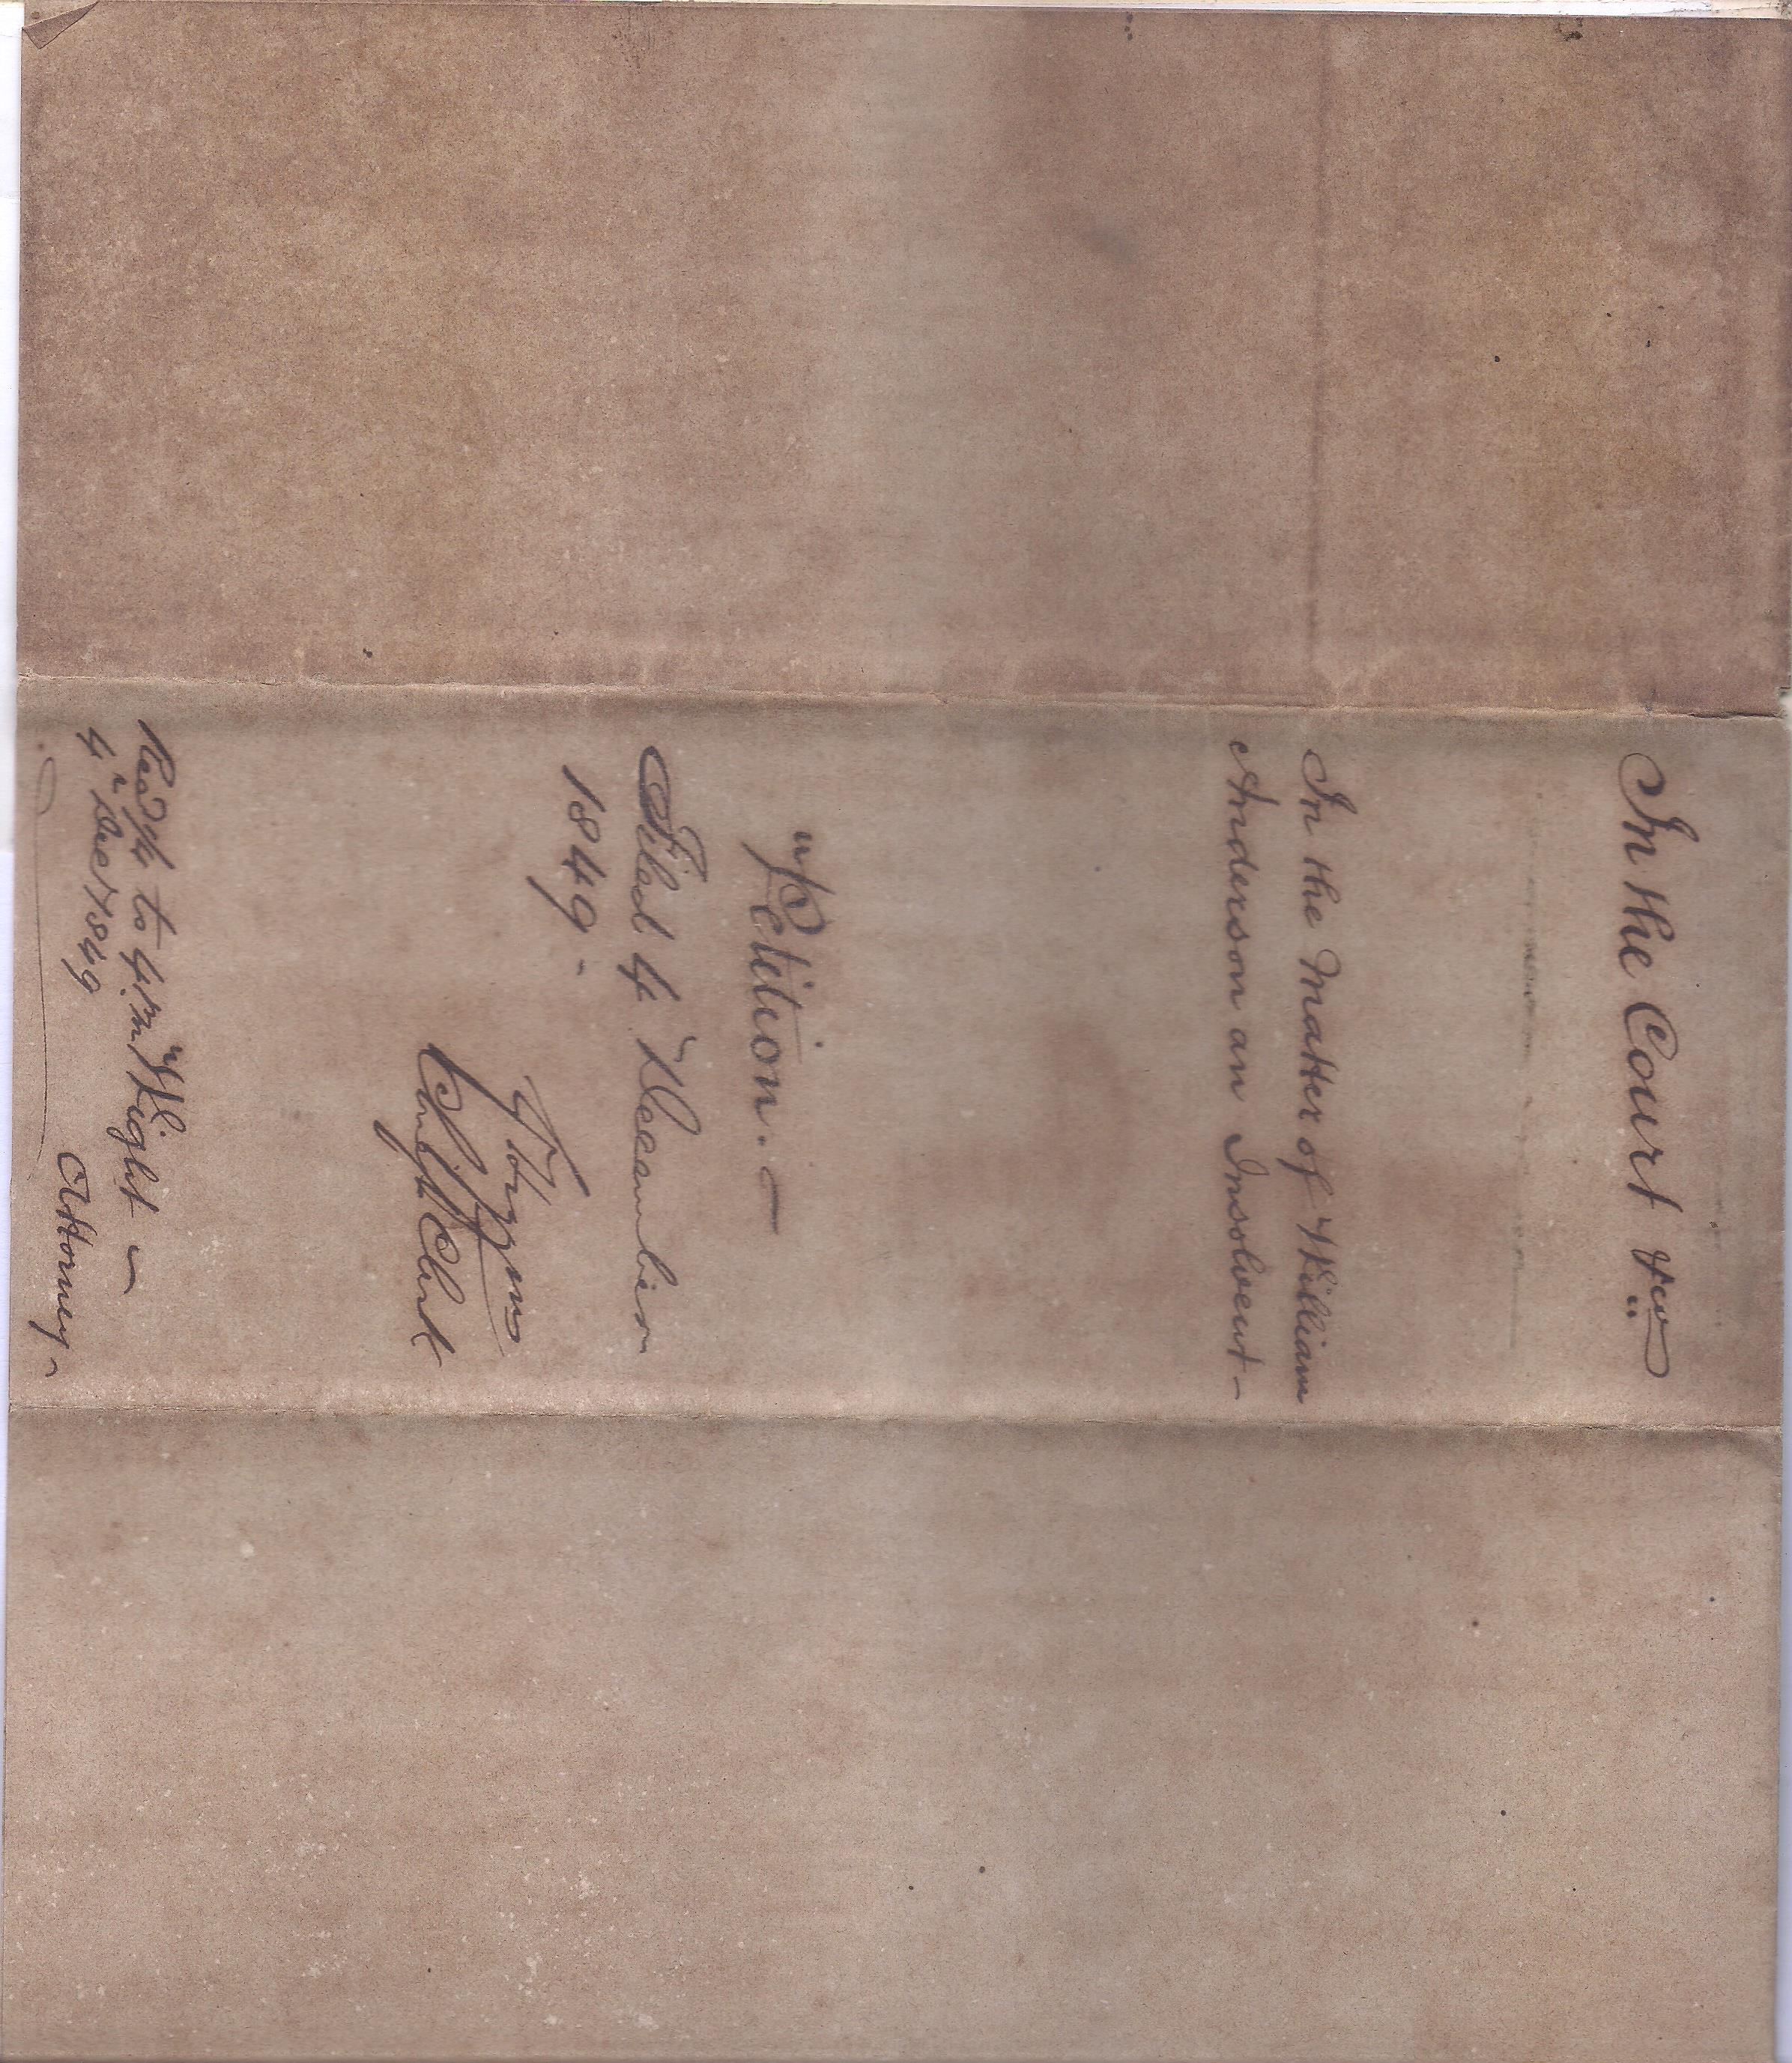 In the Court &c
In the Matter of William
Anderson an Insolvent –
Petition. –
Filed 4 December
1849 –
Chief Clerk
to Wight –
4 Dec 1849
Attorney –